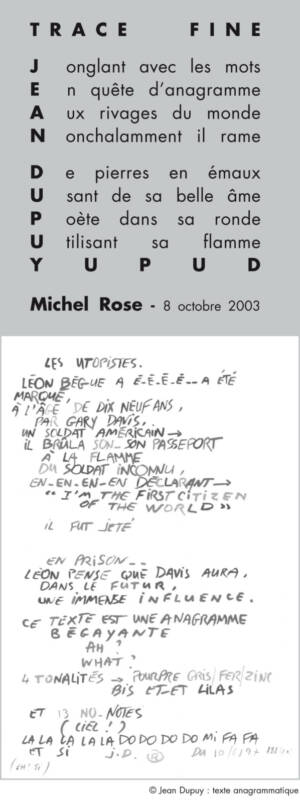 TRACE FINE
Jonglant avec les mots
En quête d'anagramme
Aux rivages du monde
Nonchalamment il rame
De pierres en émaux
Usant de sa belle âme
Poète dans sa ronde
Utilisant sa flamme
YUPUD
Michel Rose - 8 octobre 2003
LES UTOPISTES.
LÉON BÈGUE A É-É-É-É-- A ÉTÉ
MARQUÉ,
À L'ÂGE DE DIX NEUF ANS,
PAR GARY DAVIS,
UN SOLDAT AMÉRICAIN→
IL BRÛLA SON_ SON PASSEPORT
À LA FLAMME
DU SOLDAT INCONNU,
EN-EN-EN-EN DÉCLARANT→
"I'M THE FIRST CITIZEN
OF THE WORLD"
IL FUT JETÉ
EN PRISON__
LÉON PENSE QUE DAVIS AURA,
DANS LE FUTUR,
UNE IMMENSE INFLUENCE.
CE TEXTE EST UNE ANAGRAMME
BÉGAYANTE
AH?
WHAT?
4 TONALITÉS → POURPRE GRIS/FER/ZINC
BIS ET-ET LILAS
ET 13 NO-NOTES
(CIEL!)
LA LA LA LA LA DO DO DO DO MI FA FA
ET SI J.D.
(EH! SI)
© Jean Dupuy : texte anagrammatique